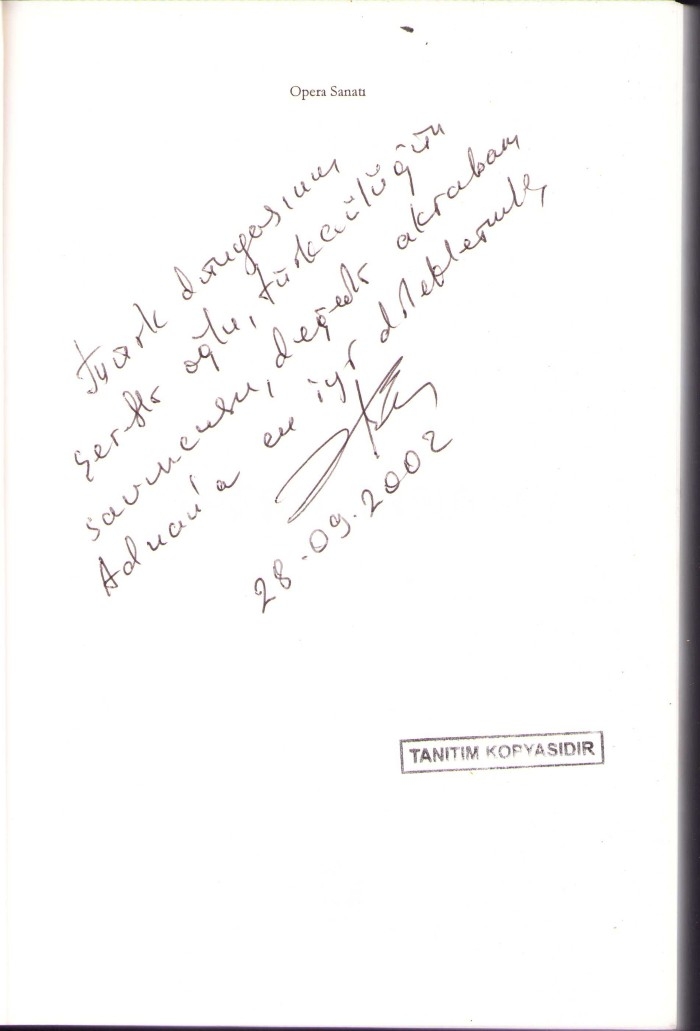 Opera Sanatı
Türk dünyasının
şerefli oğlu, türkçülüğün
savuncusu, değerli akrabam
Adnan'a en iyi dileklerimle,
28.09.2002
TANITIM KOPYASIDIR